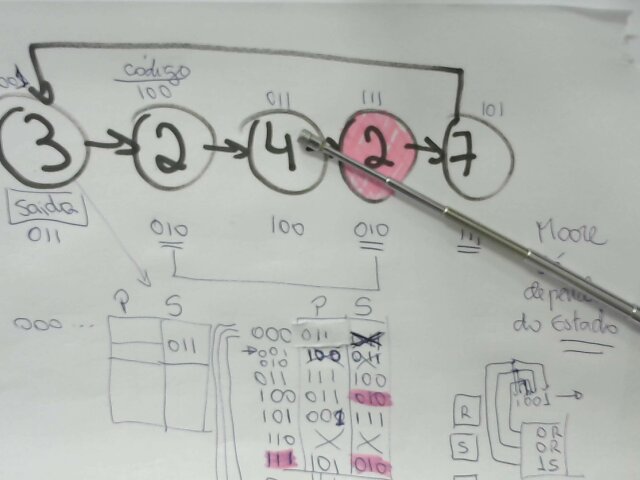 001 código 011 111 101
100
3 2 4 2 7
saida
011 010 100 010 111
Moore
é
depende
do Estado
P S P S
000 ... 011 000 011 X
001 100
010
011 111 100
100 011 010
101 001 111
110 X X
111 101 010
R
S
1001
0R
0R
1S